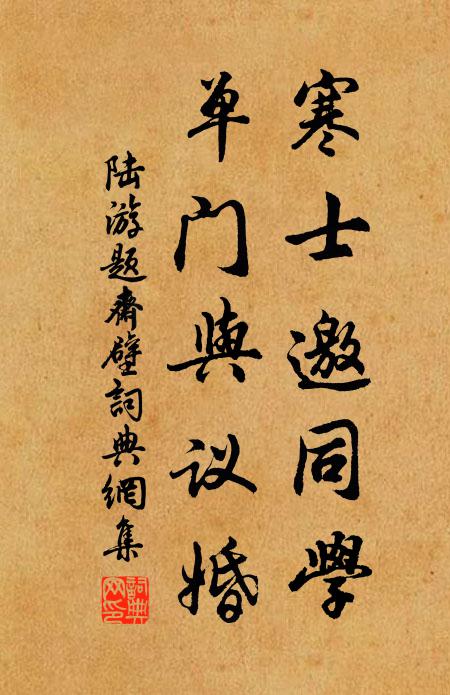 寒士邀同學
单门與议婚
陆游题斋壁詞典網集
詞典
网印